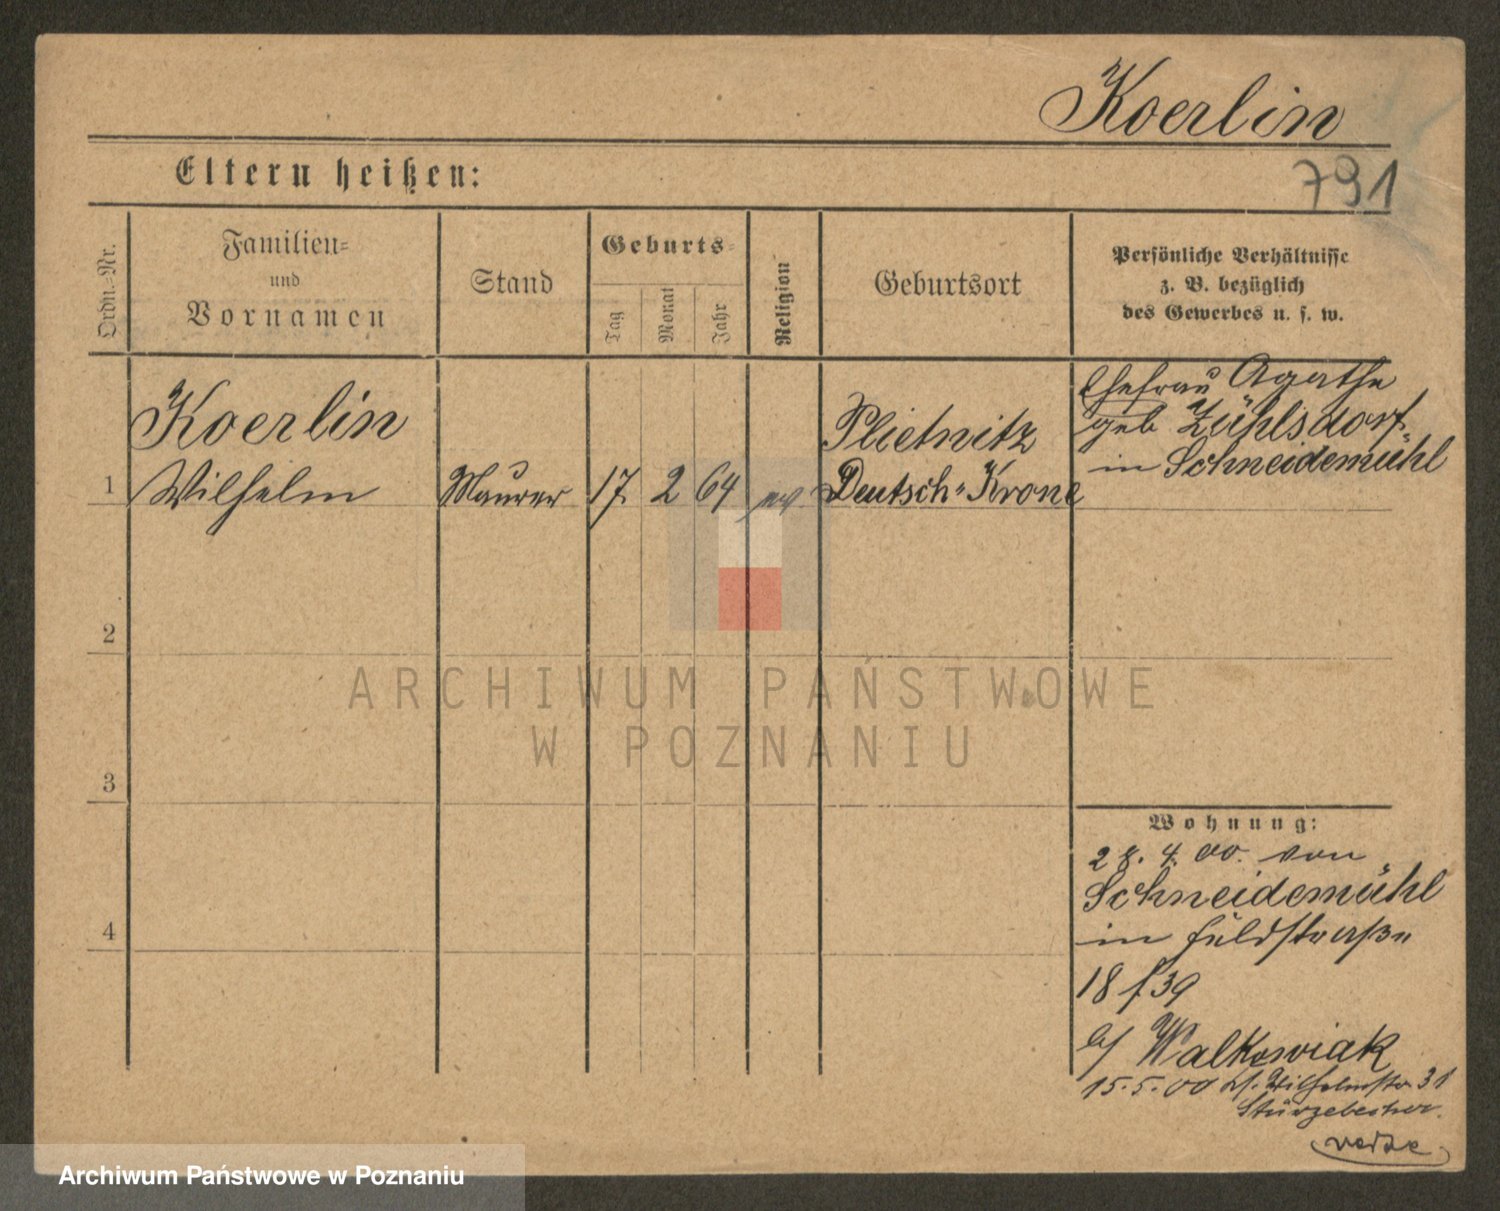 Koerlin
Eltern heißen:
791
Ordn.-Nr.
Familien-
und
Vornamen
Stand
Geburts-
Tag
Monat
Jahr
Religion
Geburtsort
Persönliche Verhältnisse
z. B. bezüglich
des Gewerbes u. s. w.
Koerlin
1 Wilhelm Maurer 17. 2 64 ev
Plietnitz
Deutsch-Krone
Ehefrau Agathe
geb Zühlsdorf
in Schneidemühl
2
3
4
ARCHIWUM PAŃSTWOWE
W POZNANIU
Wohnung:
28. 4. 00. von
Schneidemühl
in Feldstraße
18 39
b/ Walkowiak
15. 5. 00 Wilhelmstr. 31
Archiwum Państwowe w Poznaniu